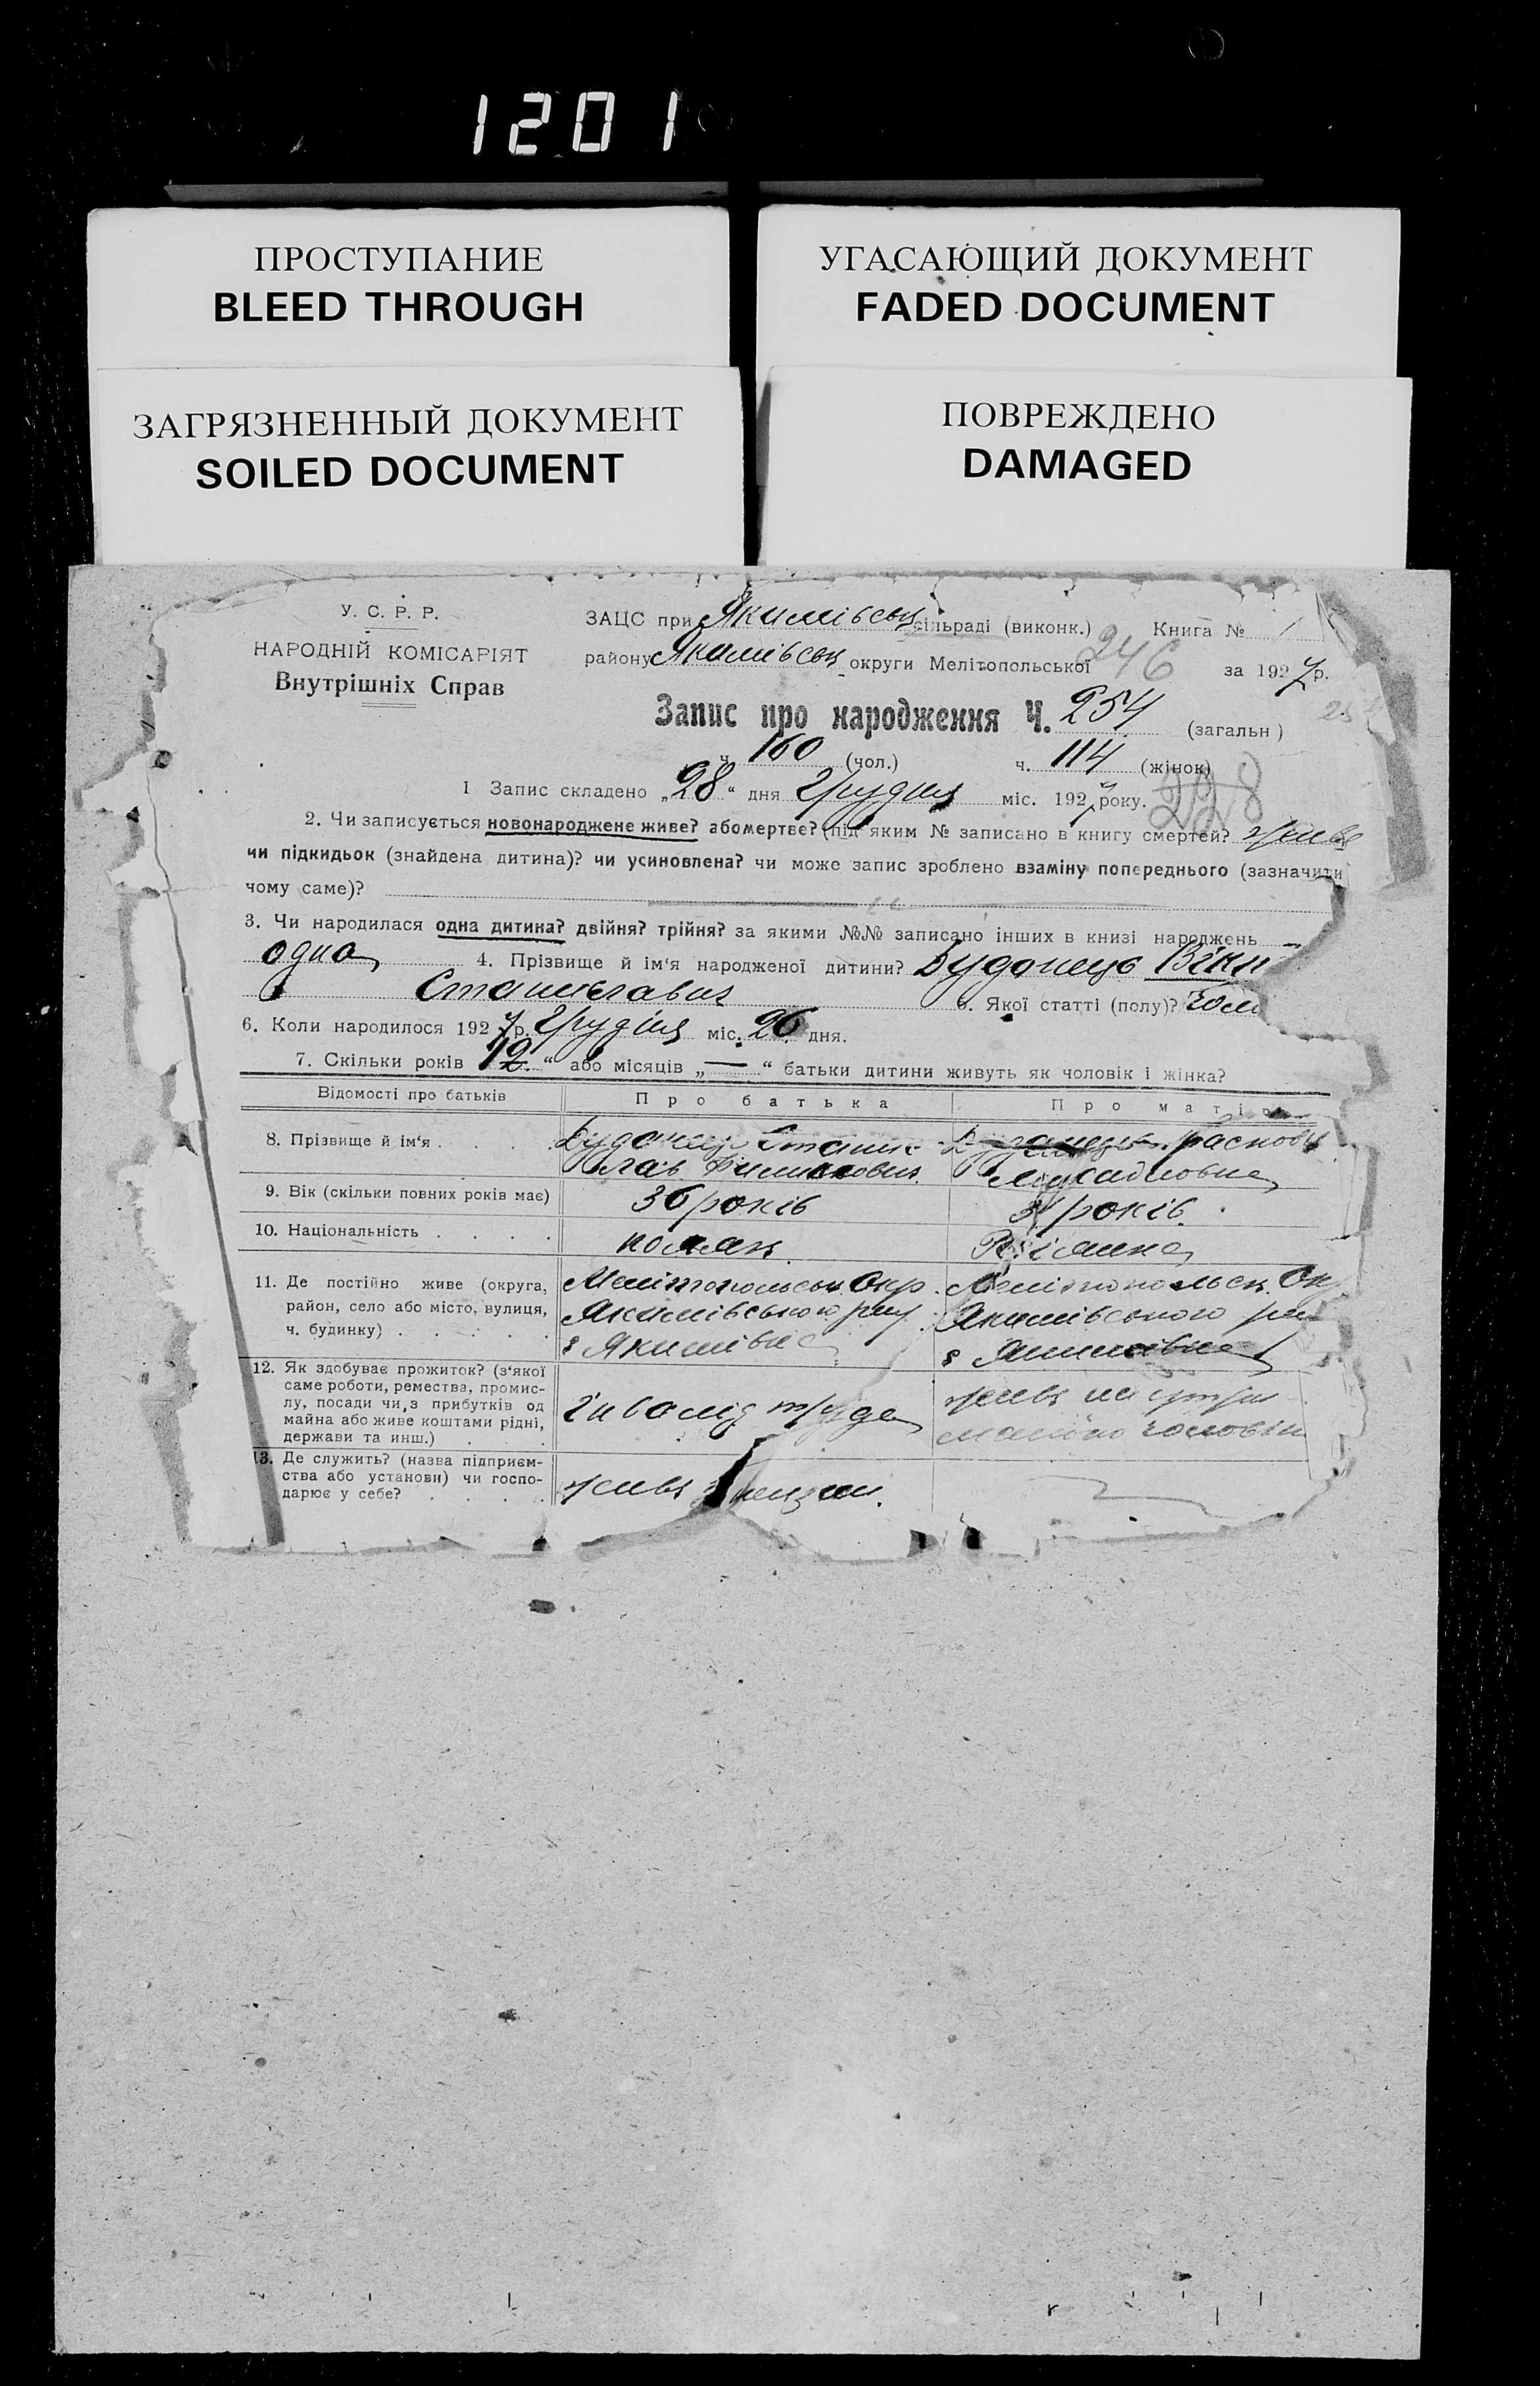 1201
ПРОСТУПАНИЕ
BLEED THROUGH
УГАСАЮЩИЙ ДОКУМЕНТ
FADED DOCUMENT
ЗАГРЯЗНЕННЫЙ ДОКУМЕНТ
SOILED DOCUMENT
ПОВРЕЖДЕНО
DAMAGED
У. С. Р. Р.
НАРОДНІЙ КОМІСАРІЯТ
Внутрішніх Справ
ЗАЦС при Якимівськ сільраді (виконк.) Книга №
району Якимівськ округи Мелітопольської 246 за 1927 р.
Запис про народження Ч. 254 (загальн)
ч. 160 (чол.) ч. 114 (жінок)
1 Запис складено „28“ дня Грудня міс. 1927 року. 228
2. Чи записується новонароджене живе? або мертве? (під яким № записано в книгу смертей? живе
чи підкидьок (знайдена дитина)? чи усиновлена? чи може запис зроблено взаміну попереднього (зазначити
чому саме)?
3. Чи народилася одна дитина? двійня? трійня? за якими №№ записано інших в книзі народжень
одна 4. Прізвище й ім‘я народженої дитини? Будонець
Станиславів Якої статті (полу)? чол
6. Коли народилося 1927 р. Грудня міс. 26 дня.
7. Скільки років 12 “ або місяців „—“ батьки дитини живуть як чоловік і жінка?
Відомості про батьків Про батька Про матір
8. Прізвище й ім‘я Будонець Станис-
лав
9. Вік (скільки повних років має) 36 років 34 років
10. Національність поляк
11. Де постійно живе (округа, Мелітопольськ Окр Мелітопольськ Ок
район, село або місто, вулиця, Якимівського рай Якимівського рай
ч. будинку) с Якимівка с Якимівка
12. Як здобуває прожиток? (з‘якої
саме роботи, ремества, промис-
лу, посади чи, з прибутків од
майна або живе коштами рідні,
держави та инш.) Інвалід труда живе на утри-
манню чоловік
13. Де служить? (назва підприєм-
ства або установи) чи госпо-
дарює у себе? живе